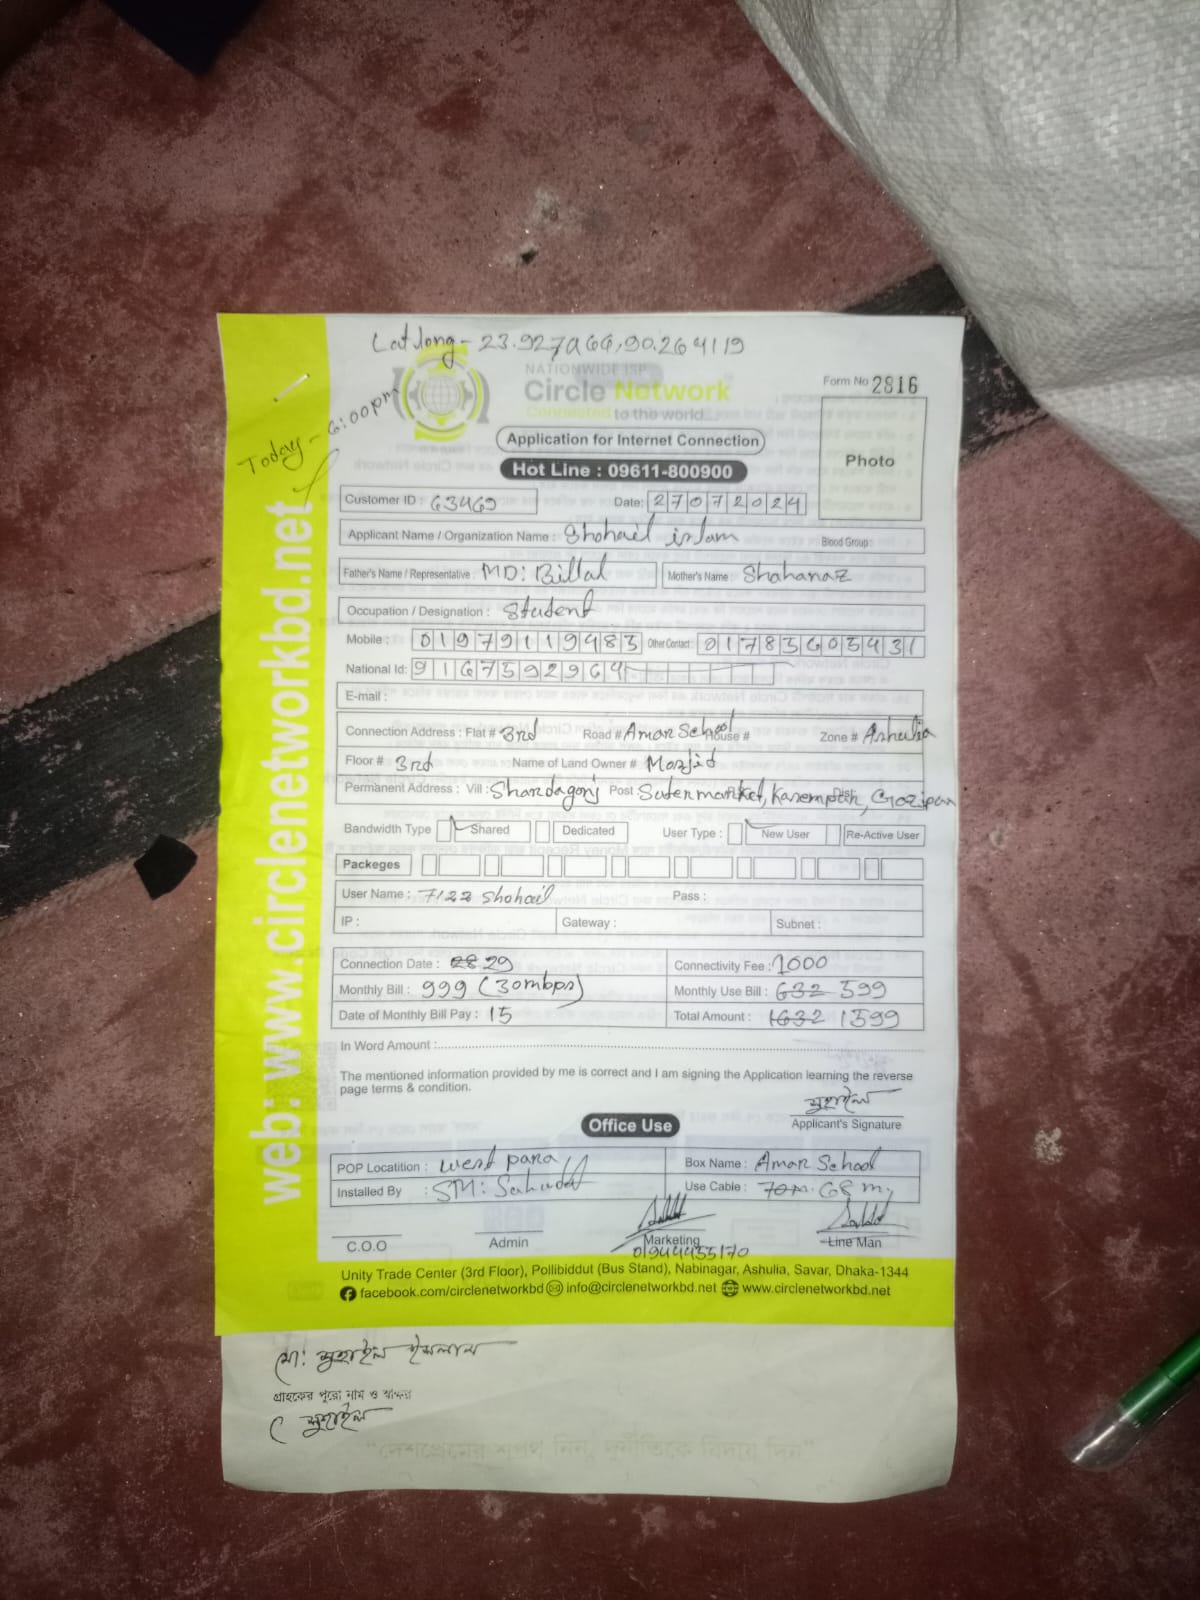 Lat long - 23.927966,90.264119
NATIONWIDE ISP
Circle Network
Connected to the world
Form No 2816
Today - 6:00pm
Application for Internet Connection
Photo
Hot Line : 09611-800900
Customer ID : 63469 Date: 27072024
Applicant Name / Organization Name : Shohail islam Blood Group:
Father's Name / Representative : MD: Billal Mother's Name : Shahanaz
Occupation / Designation : Student
Mobile : 01979119483 Other Contact : 01783603431
National Id: 9167592964
E-mail :
Connection Address : Flat # 3rd Road # Amar School House # Zone # Ashulia
Floor # 3rd Name of Land Owner # Mosjid
Permanent Address : Vill : Shardagonj Post : Sutermarket, Kasempur, Gazipur
Bandwidth Type Shared Dedicated User Type : New User Re-Active User
Packeges
User Name : 7122 Shohail Pass :
IP : Gateway : Subnet :
Connection Date : 28 29 Connectivity Fee : 1000
Monthly Bill : 999 (30mbps) Monthly Use Bill : 632 599
Date of Monthly Bill Pay : 15 Total Amount : 1632 1599
In Word Amount :
The mentioned information provided by me is correct and I am signing the Application learning the reverse
page terms & condition.
সুহাইল
Applicant's Signature
Office Use
POP Locatition : west para Box Name : Amar School
Installed By : SM: Sahadat Use Cable : 70m. 68 m,
C.O.O Admin Marketing Line Man
01944435170
Unity Trade Center (3rd Floor), Pollibiddut (Bus Stand), Nabinagar, Ashulia, Savar, Dhaka-1344
facebook.com/circlenetworkbd info@circlenetworkbd.net www.circlenetworkbd.net
web: www.circlenetworkbd.net
মো: সুহাইল ইসলাম
গ্রাহকের পুরো নাম ও স্বাক্ষর
সুহাইল